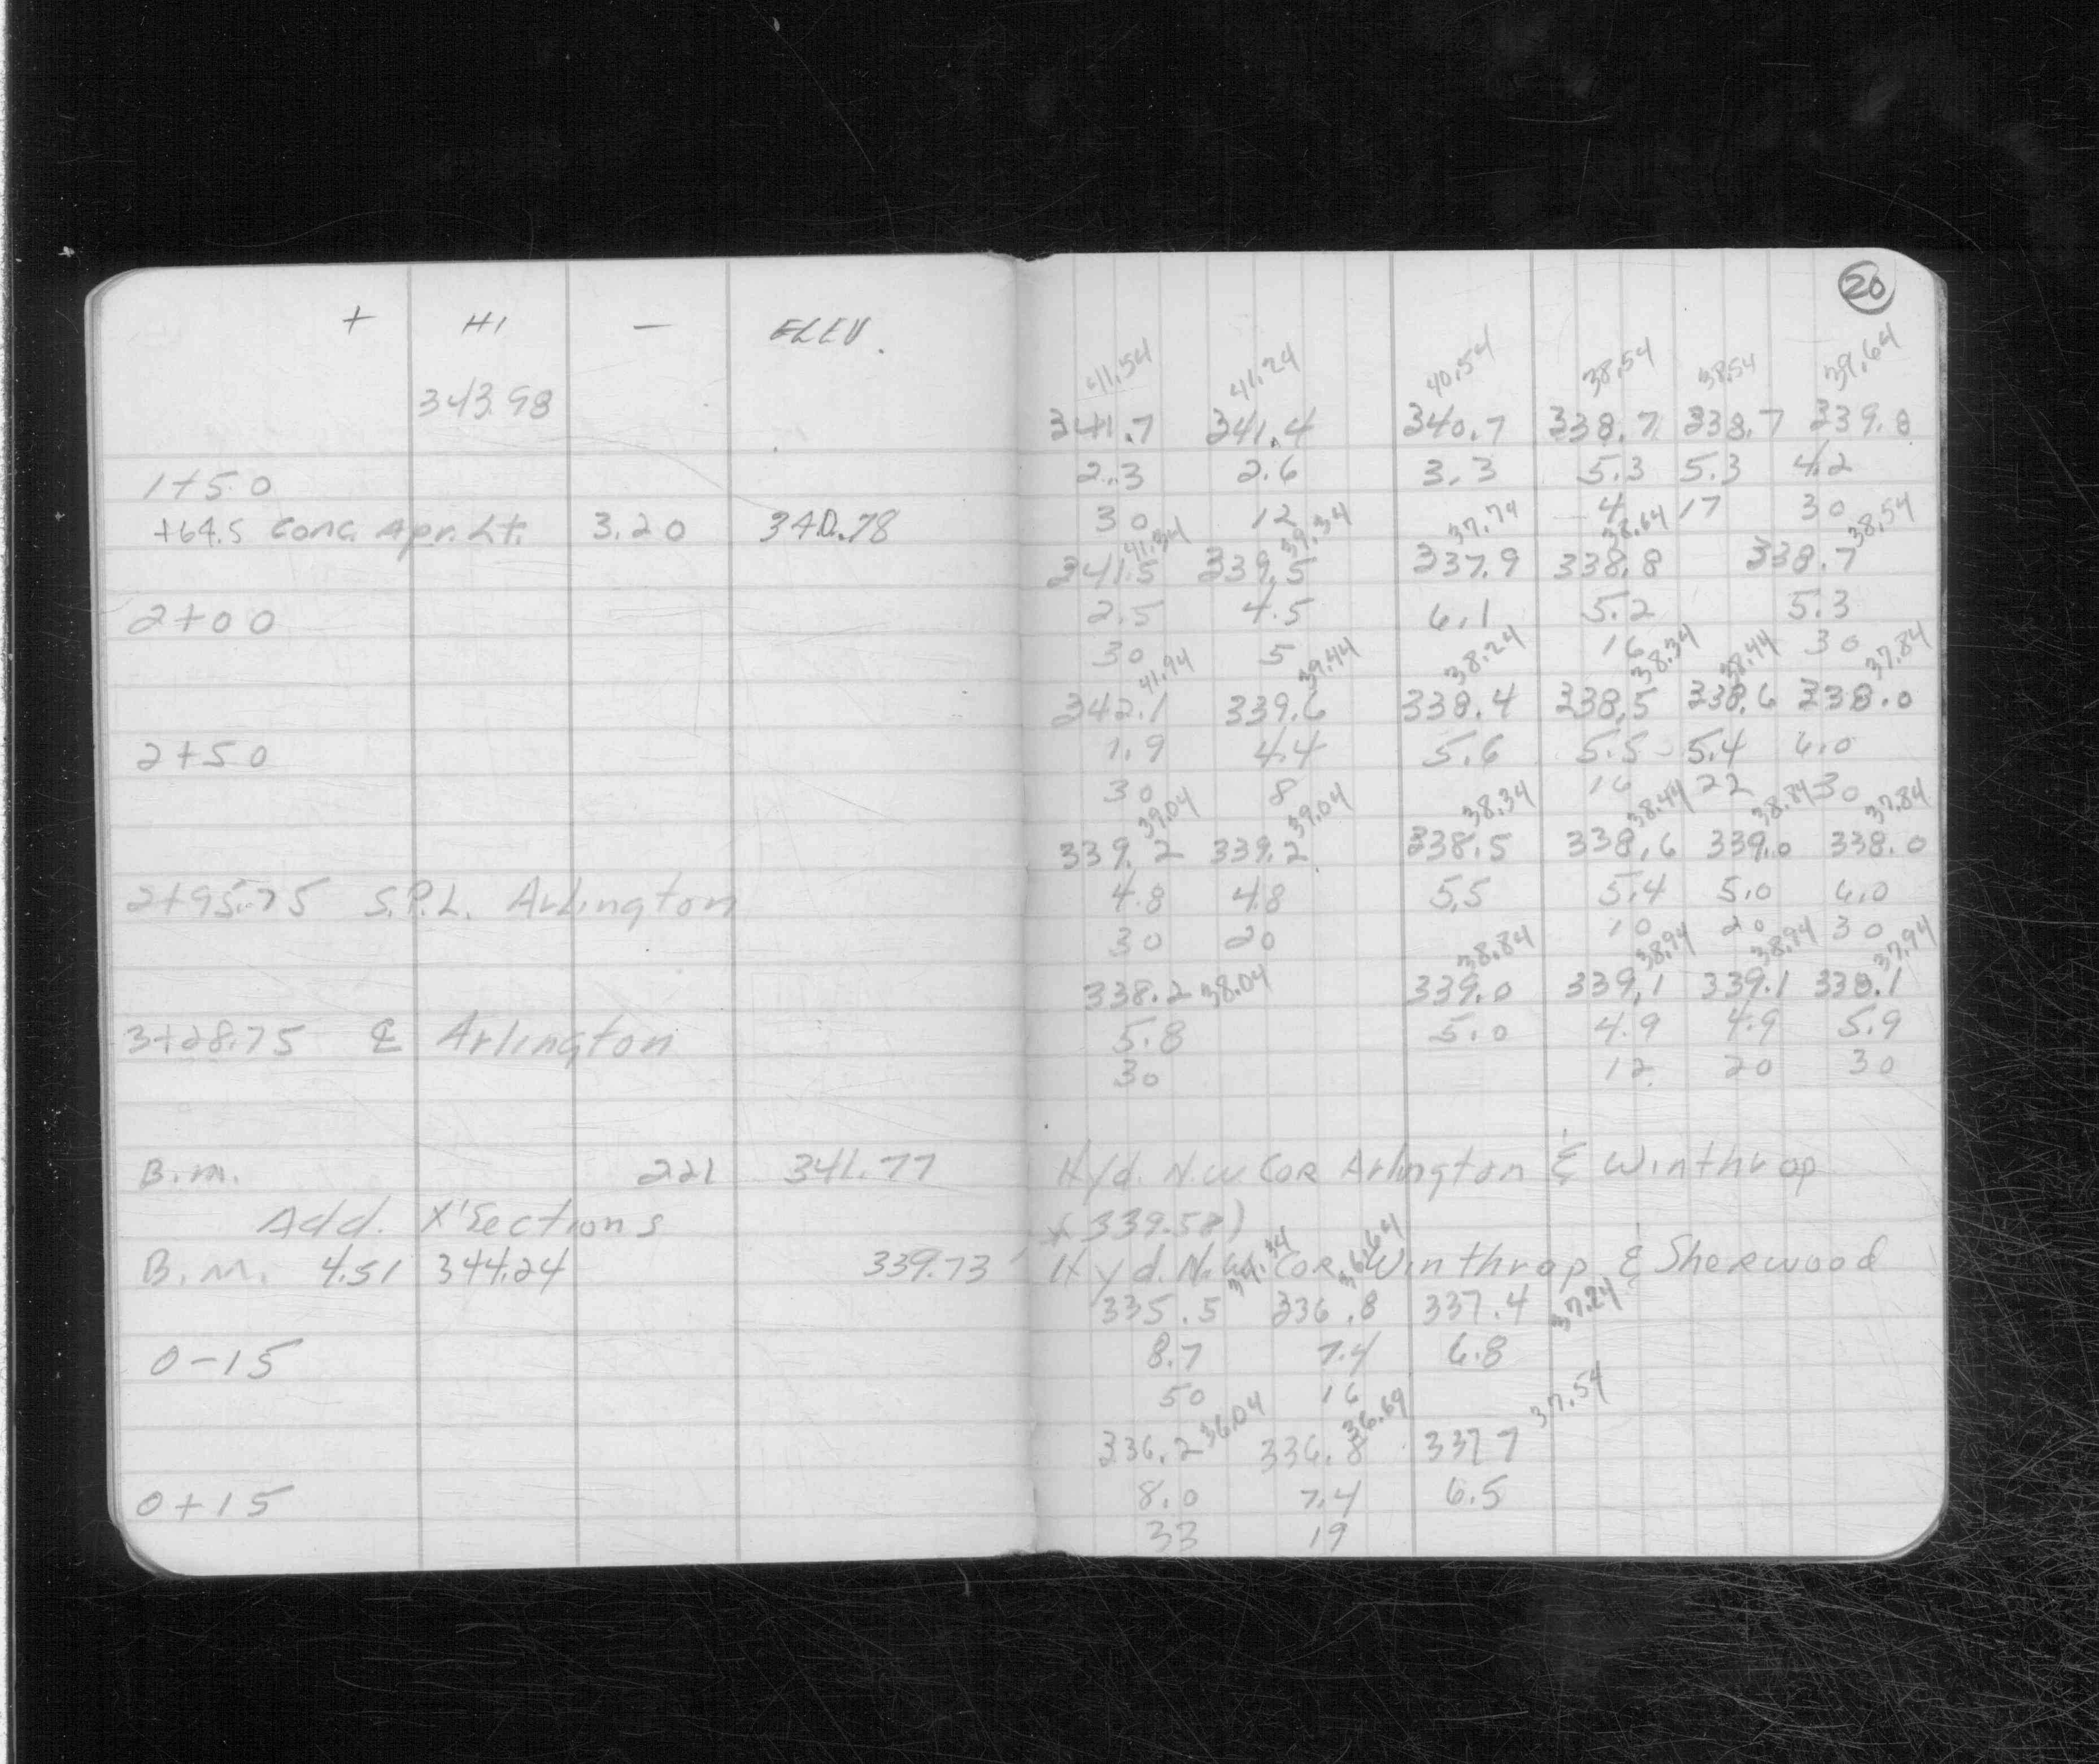 20
+ HI — ELEV.
41.54 41.24 40.54 38.54 38.54 39.64
343.98
341.7 341.4 340.7 338.7 338.7 339.8
1+50 2.3 2.6 3.3 5.3 5.3 4.2
30 12 4 17 30
+64.5 Conc. Apr. Lt. 3.20 340.78
41.34 39.34 37.74 38.64 38.54
341.5 339.5 337.9 338.8 338.7
2+00 2.5 4.5 6.1 5.2 5.3
30 5 16 30
41.94 39.44 38.24 38.34 38.44 37.84
342.1 339.6 338.4 338.5 338.6 338.0
2+50 1.9 4.4 5.6 5.5 5.4 6.0
30 8 16 22 30
39.04 39.04 38.34 38.44 38.84 37.84
339.2 339.2 338.5 338.6 339.0 338.0
2+95.75 S.P.L. Arlington 4.8 4.8 5.5 5.4 5.0 6.0
30 20 10 20 30
38.84 38.94 38.94 37.94
338.2 38.04 339.0 339.1 339.1 338.1
3+28.75 ℄ Arlington 5.8 5.0 4.9 4.9 5.9
30 12 20 30
B.M. 2.21 341.77 Hyd. N.W Cor Arlington & Winthrop
Add. X'Sections 339.58)
B.M. 4.51 344.24 339.73 Hyd. N.W. Cor. Winthrop & Sherwood
36.64
335.5 336.8 337.4 37.24
0-15 8.7 7.4 6.8
50 16
36.04 36.69 37.54
336.2 336.8 337.7
0+15 8.0 7.4 6.5
33 19